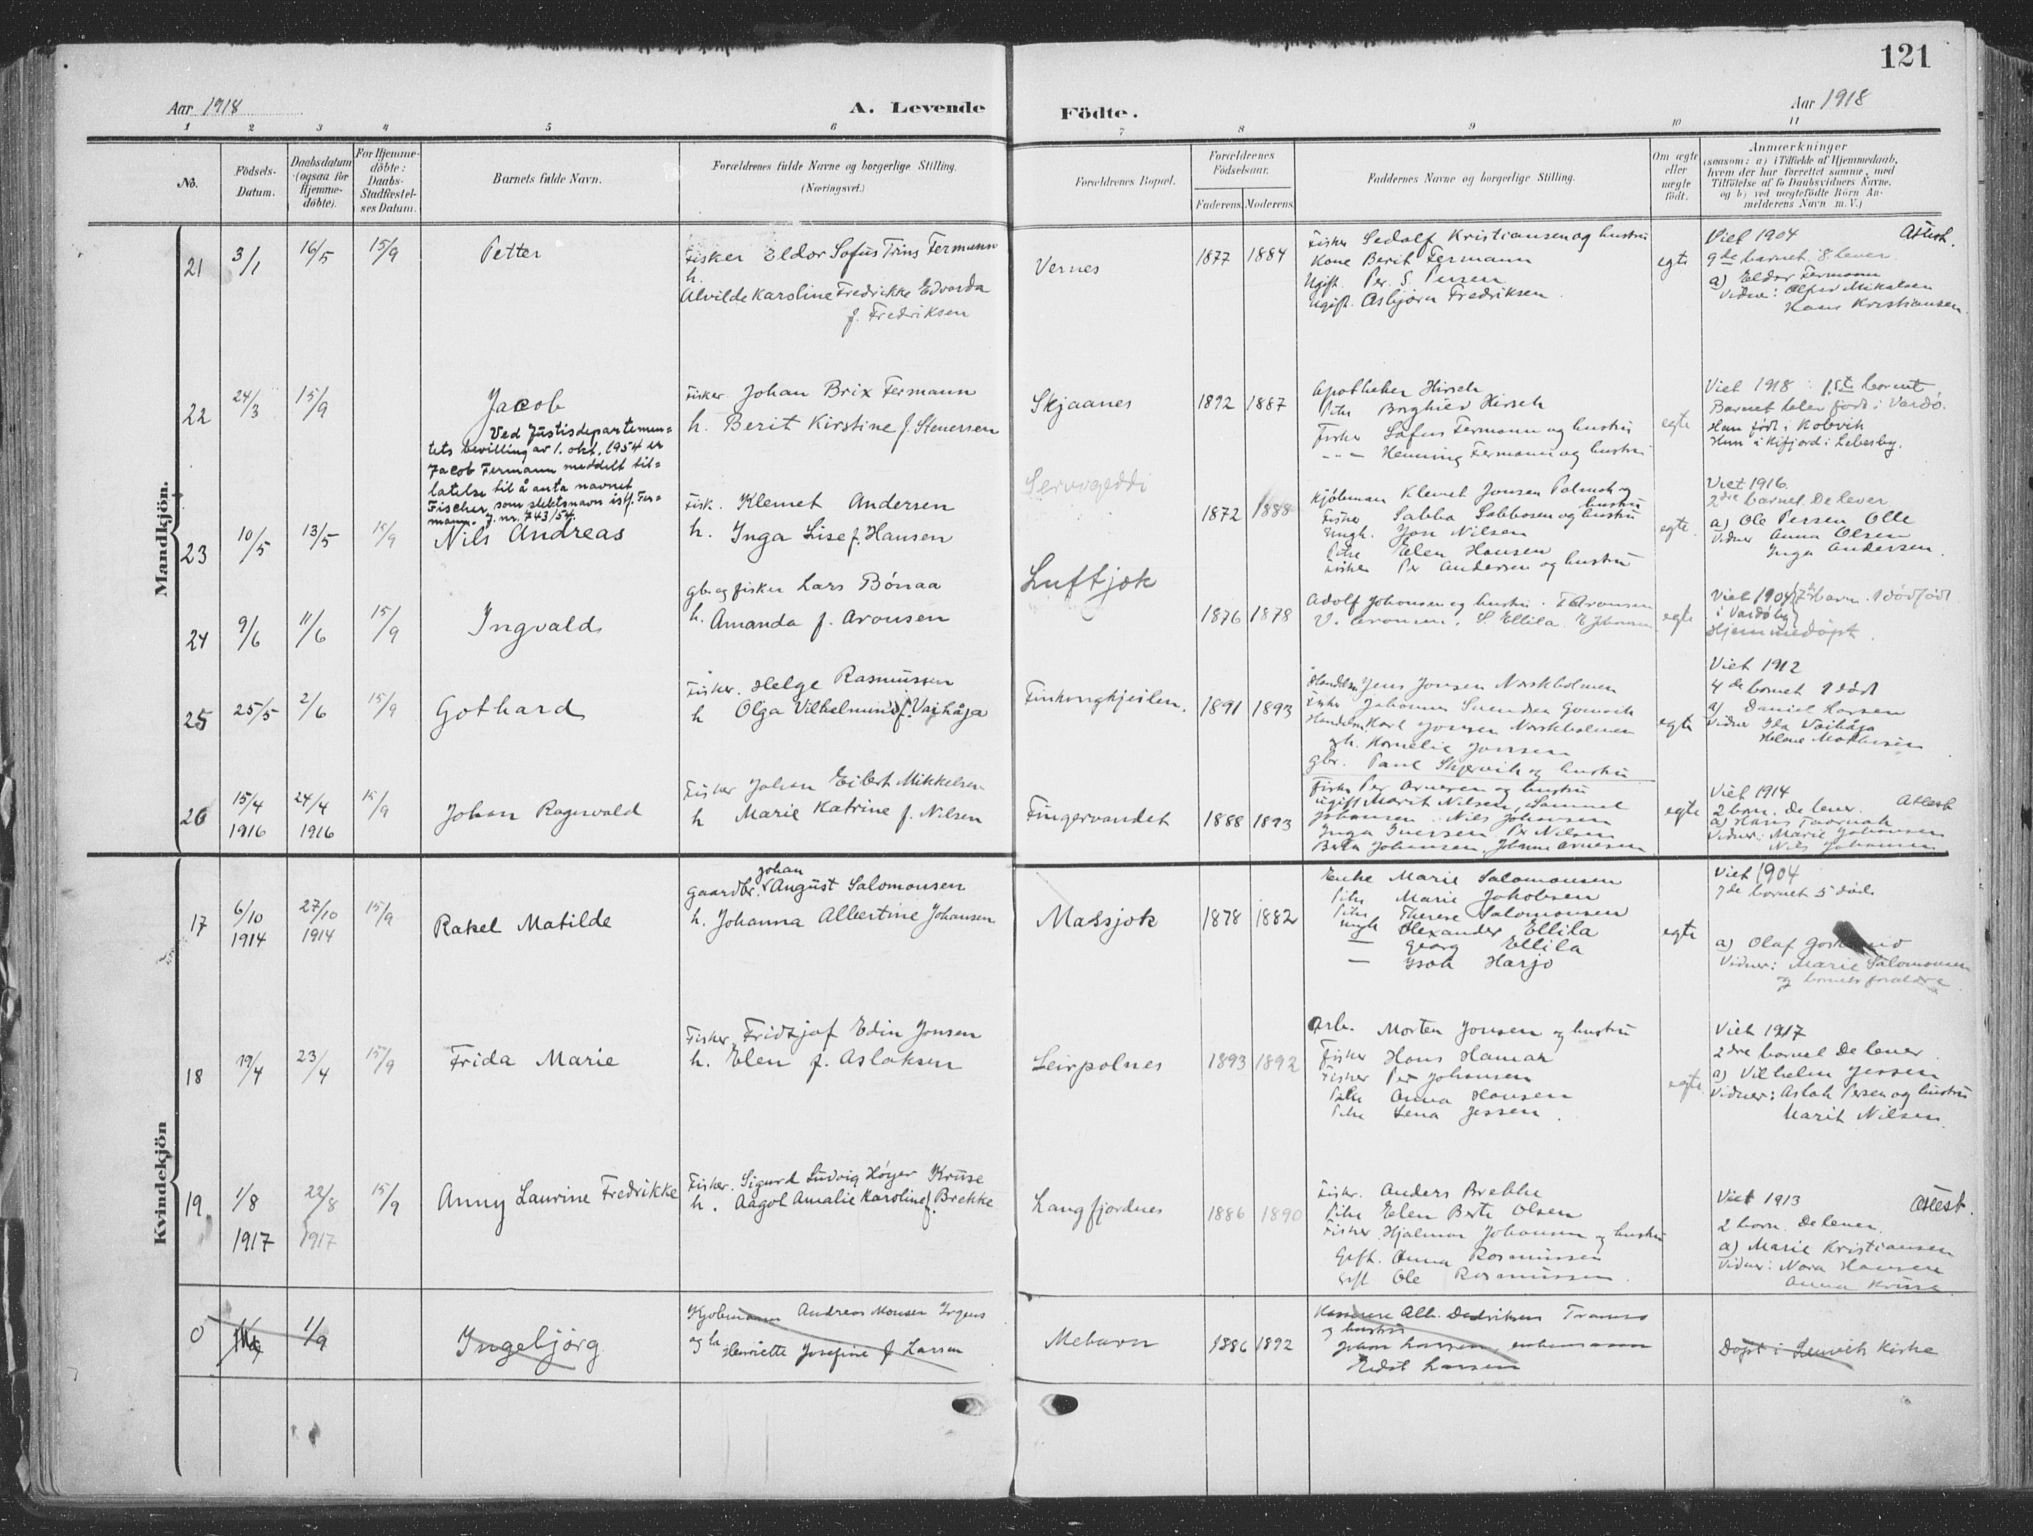 121
Aar 1918
A. Levende
Födte.
Aar 1918
1 2 3 4 5 6 7 8 9 10 11
No.
Födsels-
Datum.
Daabsdatum
(ogsaa for
Hjemme-
döbte).
For Hjemme-
döbte:
Daabs-
Stadfæstel-
ses Datum.
Barnets fulde Navn.
Forældrenes fulde Navne og borgerlige Stilling.
(Næringsvei.)
Forældrenes Bopæl.
Forældrenes
Födselsaar.
Faderens. Moderens.
Faddernes Navne og borgerlige Stilling.
Om ægte
eller
uægte
födt.
Anmærkninger
(saasom: a) i Tilfælde af Hjemmedaab,
hvem der har forrettet samme, med
Tilföielse af to Daabsvidners Navne,
og b) ved uægtefödte Börn An-
melderens Navn m. V.)
Mandkjön.
21 3/1 16/5 15/9 Petter
Fisker Eldor Sofus Trins Fermann
h.
Alvilde Karoline Fredrikke Edvarda
f. Fredriksen
Vernes
1877 1884
Fisker Sedolf Kristiansen og hustru
Kone Berit Fermann
Ugift. Per S. Persen
Ugift. Asbjørn Fredriksen
egte
Viet 1904 Attest.
9de barnet. 8 lever.
a) Eldor Fermann
Vidner: Olfert Mikalsen
Hans Kristiansen
22 24/3 15/9 Jacob
Ved Justisdepartemen-
tets bevilling av 1. okt. 1954 er
Jacob Fermann meddelt til-
latelse til å anta navnet
Fischer som slektsnavn istf. Fer-
mann. J.nr. 743/54.
Fisker Johan Brix Fermann
h. Berit Kirstine f. Stenersen
Skjaanes
1892 1887
Apotheker Hirsch
Pike Borghild Hirsch
Fisker Sofus Fermann og hustru
Henning Fermann og hustru
egte
Viet 1918 1ste barnet
Barnet blev født i Vardø.
Han født i Kobvik
Hun i Kifjord i Lebesby.
23 10/5 13/5 15/9 Nils Andreas
Fisk. Klemet Andersen
h. Inga Lise f. Hansen
1872 1888
Kjøbman Klemet Jonsen Palmak og hustru
Fisker Sabba Sabbasen og hustru
Ungk. Jon Nilsen
Pike Elen Hansen
Fisker Per Andersen og hustru
egte.
Viet 1916.
2dre barnet De lever
a) Ole Persen Olle
Vidner Anna Olsen
Inga Andersen.
24 9/6 11/6 15/9 Ingvald
gbr. og fisker Lars Bönaa
h. Amanda f. Aronsen
Luftjok
1876 1878
Adolf Johansen og hustru. F Aronsen
V. Aronsen. S. Ellila. E Johansen
egte
Viet 1904 7de barn. 1 dödfödt
i Vardø by
Hjemmedøpt.
25 25/5 2/6 15/9 Gothard
Fisker. Helge Rasmussen
h Olga Vilhelmine f. Vajhåja
Finkongkjeilen.
1891 1893
Handelsm Jens Jonsen Norskholmen
Fisker Johannes Svendsen
Handelsm Karl Jonsen Norskholmen
gh. Kornelie Jonsen
gbr. Paul Skjervik og hustru
egte
Viet 1912
4de barnet 1 död
a) Daniel Hansen
Vidner Ida Vaihåja
Helene Mathisen
26 15/4 1916 24/4 1916 15/9 Johan Ragnvald
Fisker Johan Eilert Mikkelsen
h Marie Katrine f. Nilsen
Fingervandet
1888 1893
Fisker Per Arnesen og hustru
ugift Marit Nilsen, Sammel
Johansen. Nils Johansen
Inga Iversen Per Nilsen
Berta Johansen. Johanne Arnesen
egte
Viet 1914
2 barn. De lever. Attest
a) Hans Taornak
Vidner: Marie Johansen
Nils Johansen
Kvindekjön
17 6/10 1914 27/10 1914 15/9 Rakel Matilde
Gaardbr. Johan August Salomonsen
h. Johanna Albertine Johansen
Masjok
1878 1882
Enke Marie Salomonsen
Pike Marie Jakobsen
Pike Therese Salomonsen
Ungk Alexander Ellila
— Georg Ellila
— Isak Harjo
egte
Viet 1904
7de barnet 5 död.
a) Olaf
Vidner: Marie Salomonsen
og barnets forældre
18 19/4 23/4 15/9 Frida Marie
Fisker. Fridtjof Edin Jonsen
h. Elen f. Aslaksen
Leirpolnes
1893 1892
Arb. Morten Jonsen og hustru
Fisker Hans Hamar
Fisker Per Johansen
Pike Anna Hansen
Pike Lena Jessen
egte
Viet 1917
2dre barnet De lever
a) Vilhelm Jessen
Vidner: Aslak Persen og hustru
Marit Nilsen.
19 1/8 1917 22/8 1917 15/9 Anny Laurine Fredrikke
Fisker. Sigurd Ludvig Höyer Kruse
h. Aagot Amalie Karoline f. Brekke
Langfjordnes
1886 1890
Fisker. Anders Brekke
Pike Elen Berte Olsen
Fisker Hjalmar Johansen og hustru
Gift. Anna Rasmussen
Gift Ole Rasmussen
Viet 1913 Attest.
2 barn. De lever.
a) Marie Kristiansen
Vidner: Nora Hansen
Anna Kruse
0 1/9 Ingebjörg
Kjøbmann Andreas Monsen Irgens
og h. Henriette Josefine f Larsen
Mehavn
1886 1892
Kasserer Alb. Dedriksen Tromsø
og hustru
Johan Larsen
Larsen
Døpt i Lenvik Kirke